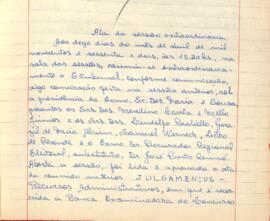 Ata da sessão extraordinária
Aos doze dias do mês de abril de mil
novecentos e sessenta e dois, às 13,30 hs, na
sala das sessões, reuniu-se extraordinaria-
mente o Tribunal, conforme comunicação,
digo convocação feita na sessão anterior, sob
a presidência do Exmo. Sr. Des. Faria e Sousa
presentes os Srs. Drs. Merolino Corrêa e Mello
Júnior e os Srs. Drs. Lindolfo Paixão,
de Faria Alvim, Samuel Werneck,
de Resende e o Exmo. Sr. Procurador Regional
Eleitoral, substituto, Dr. José Pinto Renno.
Aberta a sessão, foi lida e aprovada a ata
da reunião anterior. JULGAMENTOS -
Recursos Administrativos, em que é recor-
rida a Banca Examinadora do Concurso